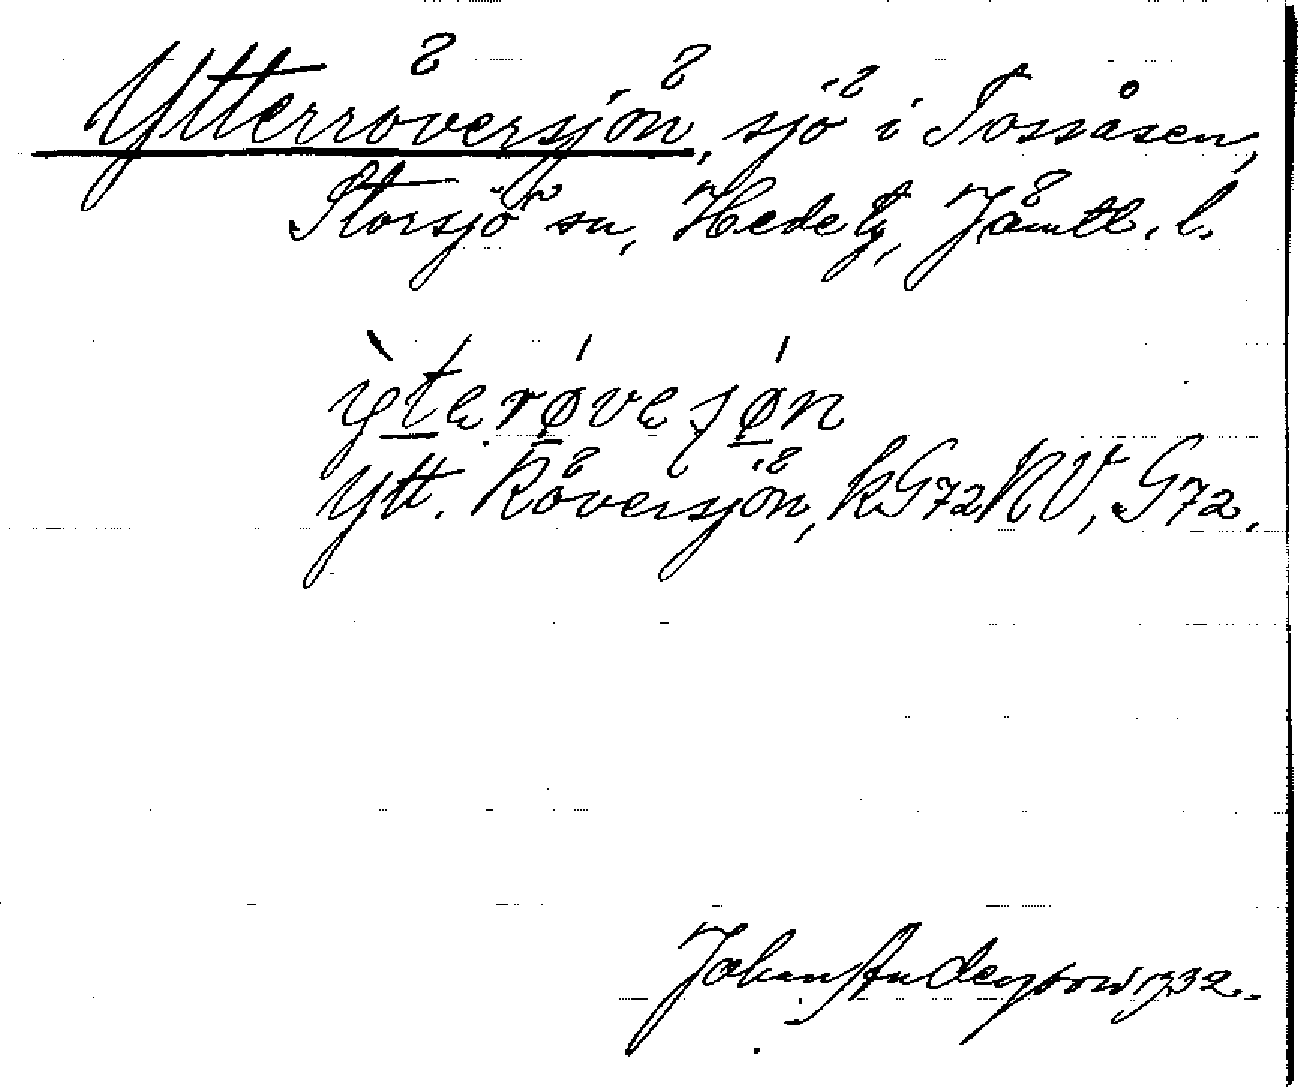 Ytterröversjön, sjö i Tossåsen,
Storsjö sn, Hede tg, Jämtl. l.
ỳterøvesjøn
Ytt. Röversjön, kG72NV, G72.
Johan Anderson 1932.